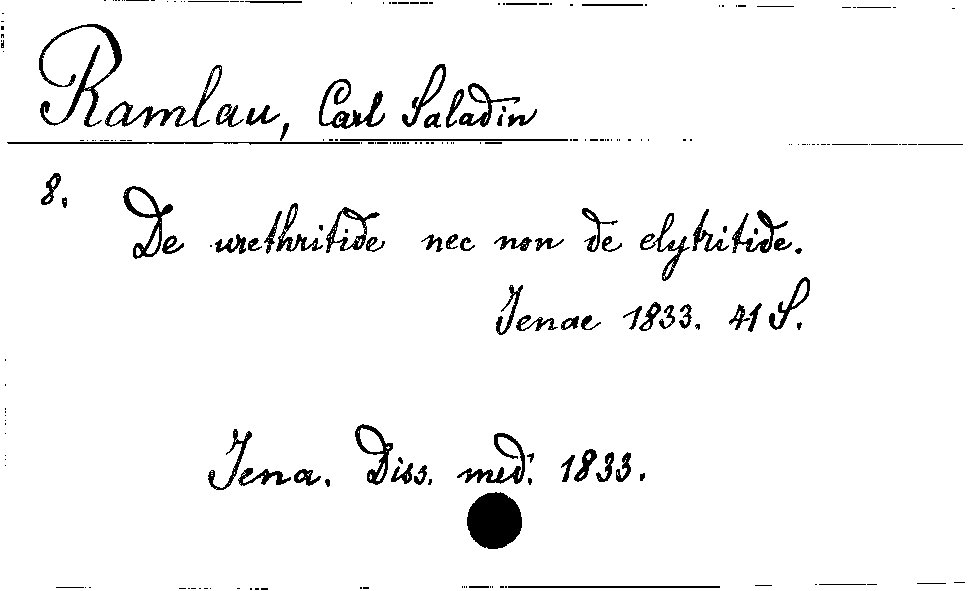 Ramlau, Carl Saladin
8.
De urethritide nec non de elytritide.
Jenae 1833. 41 S.
Jena. Diss. med. 1833.